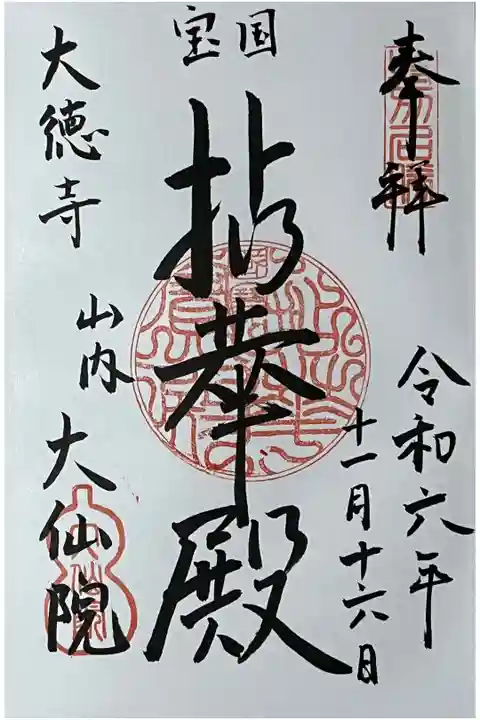 奉拝
令和六年
十一月十六日
国宝
拈華殿
大徳寺
山内
大仙院